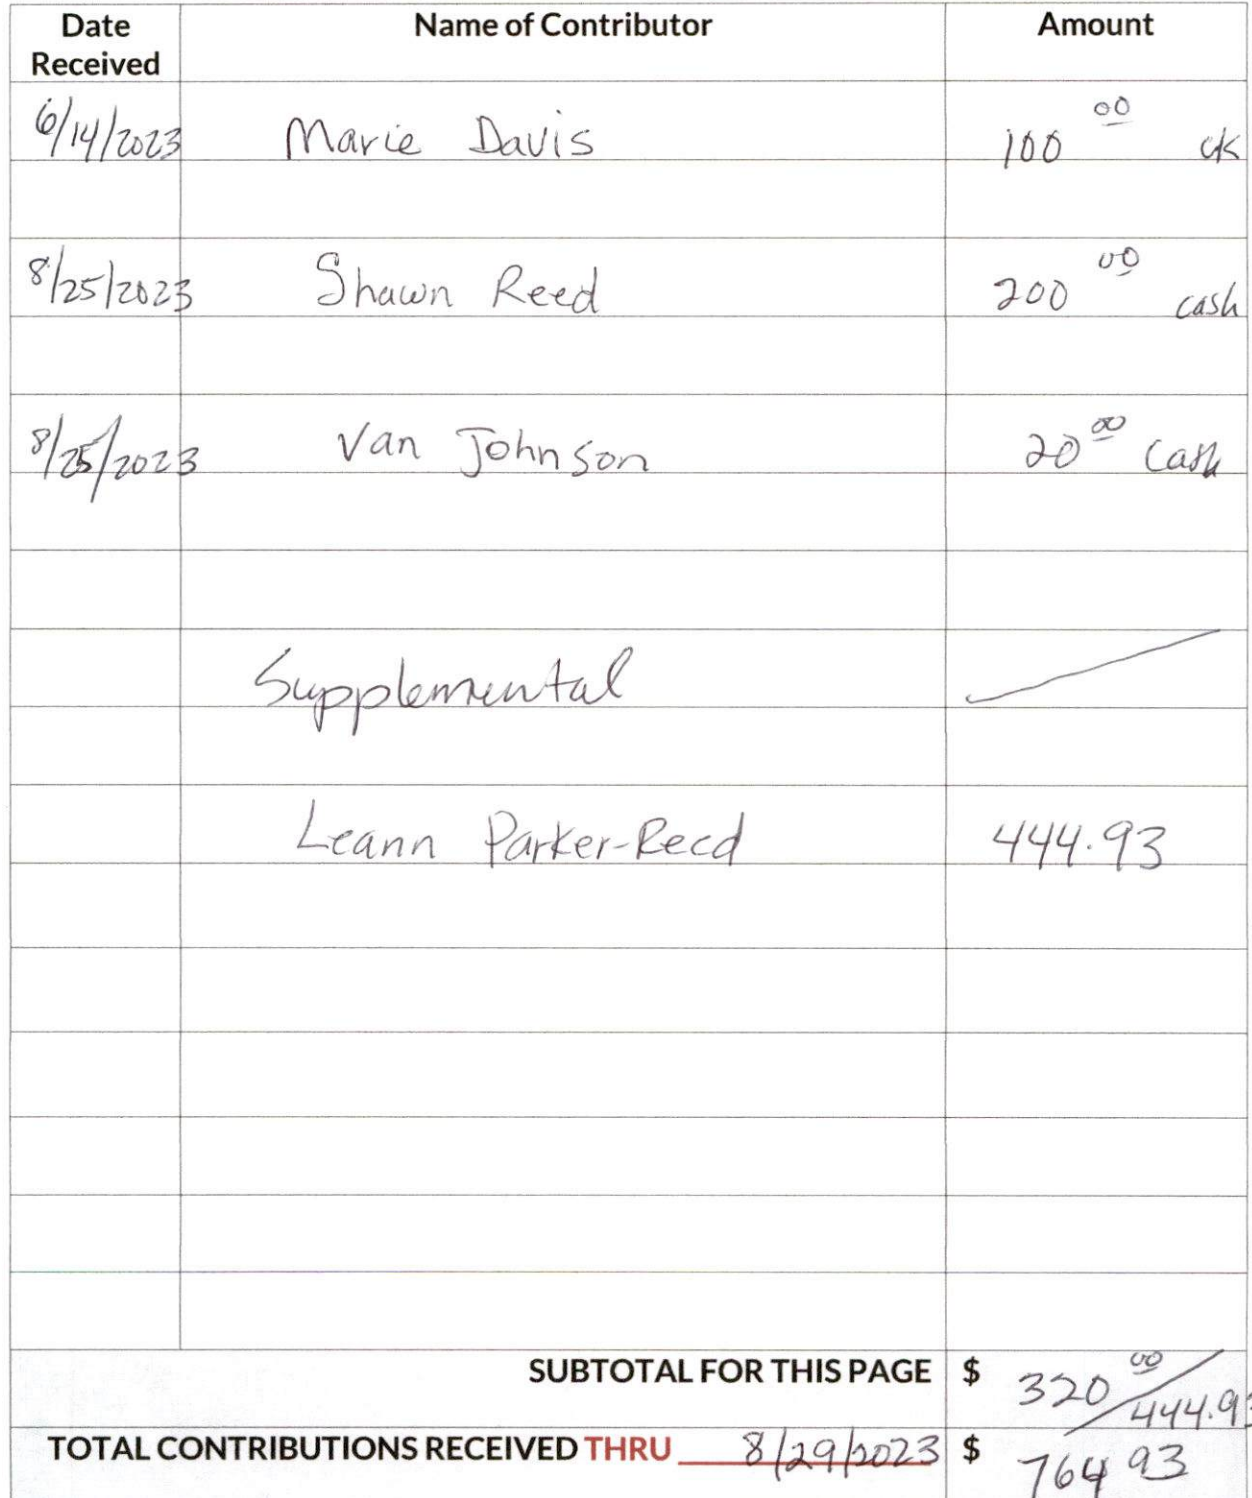 Date Received Name of Contributor Amount
6/14/2023 Marie Davis 100 00 ck
8/25/2023 Shawn Reed 200 00 cash
8/25/2023 Van Johnson 20 00 cash
Supplemental
Leann Parker-Reed 444.93
SUBTOTAL FOR THIS PAGE $ 320 00 / 444.93
TOTAL CONTRIBUTIONS RECEIVED THRU 8/29/2023 $ 764 93